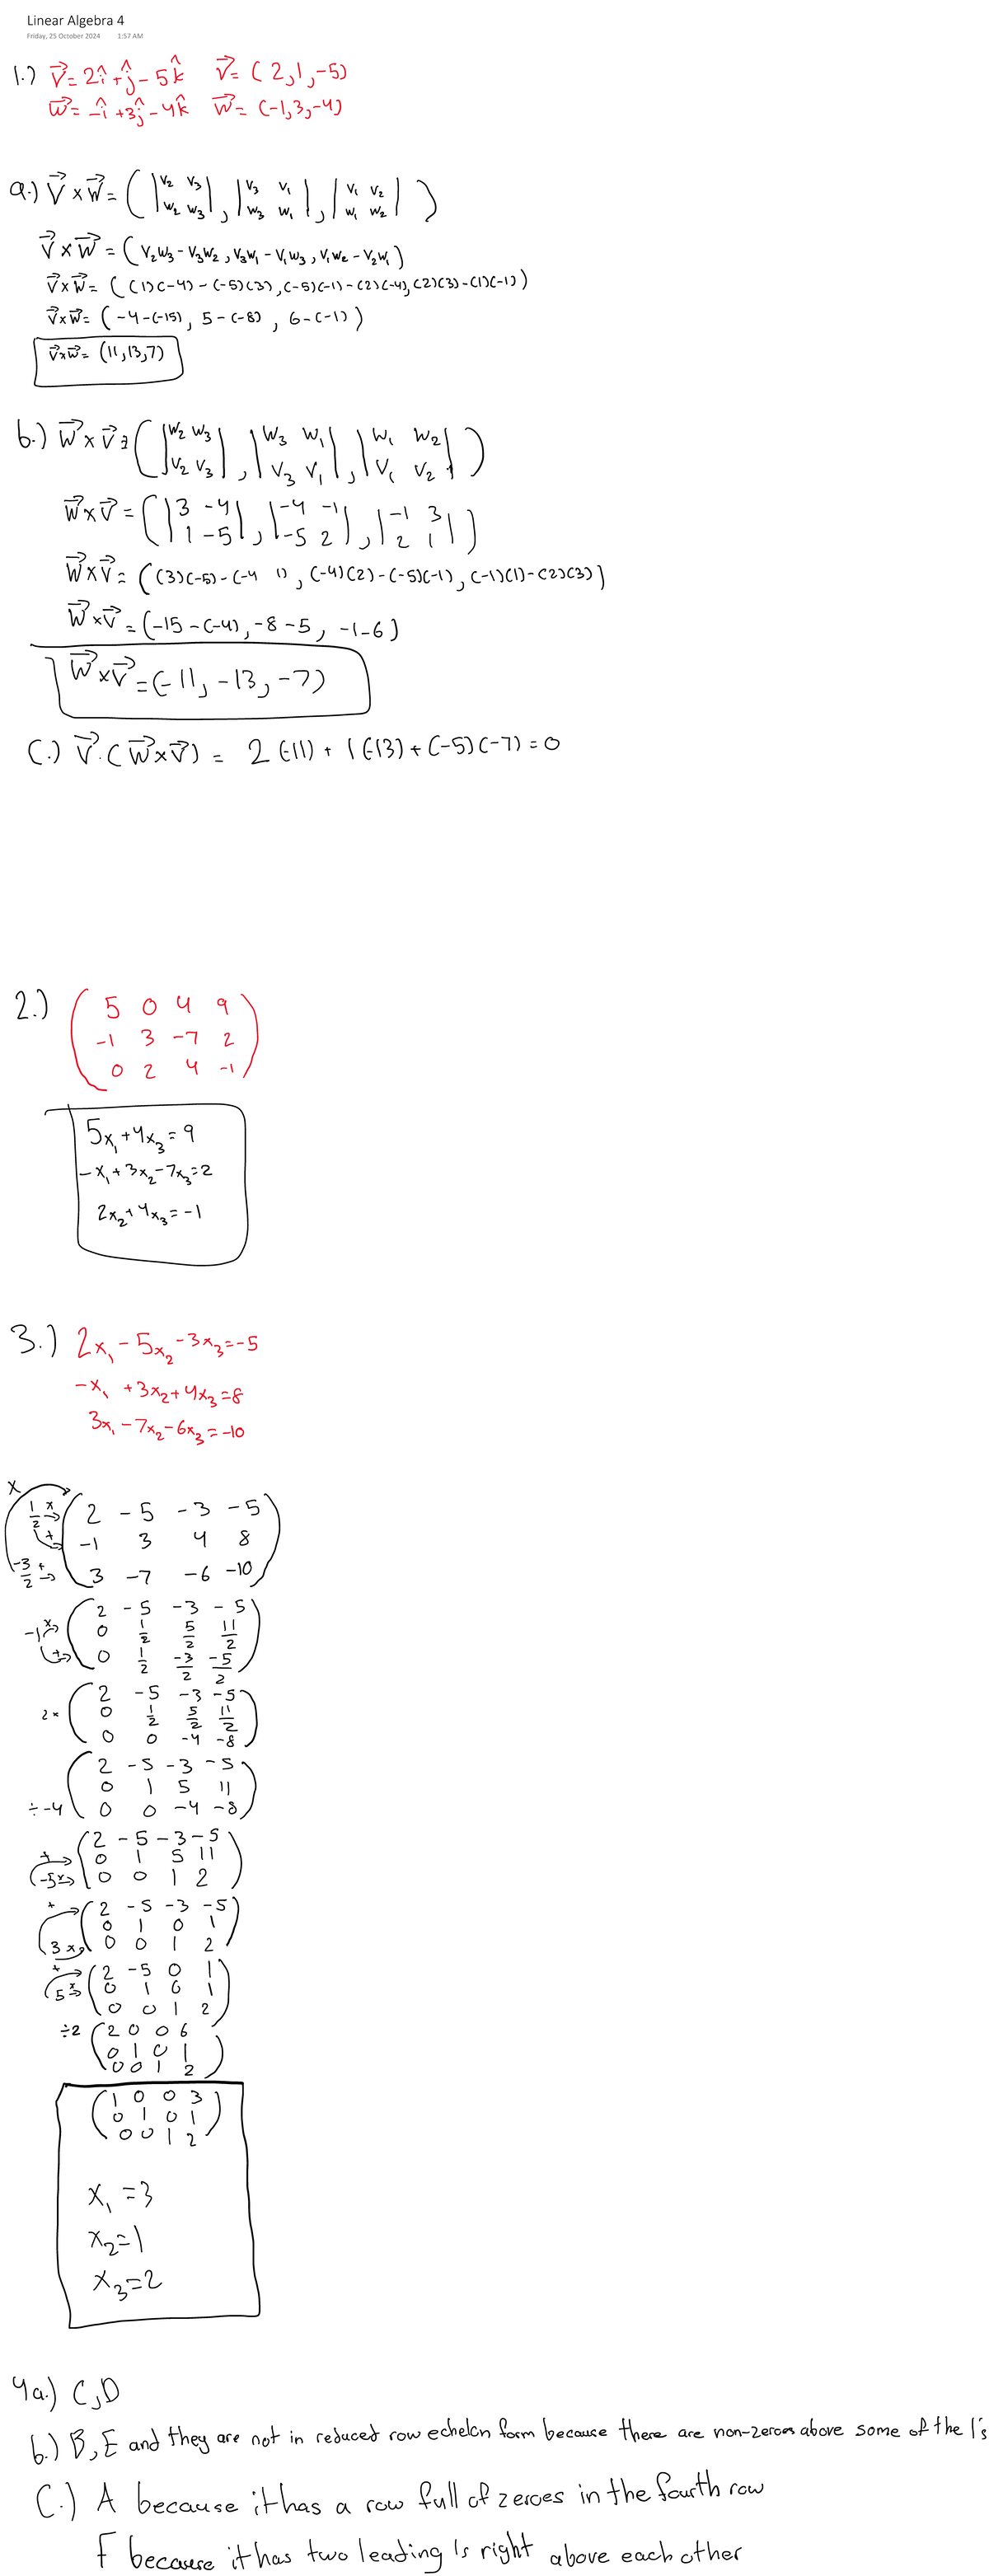 Linear Algebra 4
Friday, 25 October 2024 1:57 AM
1.) v⃗ = 2î + ĵ - 5k̂ v⃗ = (2, 1, -5)
w⃗ = -î + 3ĵ - 4k̂ w⃗ = (-1, 3, -4)
a.) v⃗ × w⃗ = ( |v₂ v₃; w₂ w₃|, |v₃ v₁; w₃ w₁|, |v₁ v₂; w₁ w₂| )
v⃗ × w⃗ = (v₂w₃ - v₃w₂, v₃w₁ - v₁w₃, v₁w₂ - v₂w₁)
v⃗ × w⃗ = ((1)(-4) - (-5)(3), (-5)(-1) - (2)(-4), (2)(3) - (1)(-1))
v⃗ × w⃗ = (-4 - (-15), 5 - (-8), 6 - (-1))
v⃗ × w⃗ = (11, 13, 7)
b.) w⃗ × v⃗ = ( |w₂ w₃; v₂ v₃|, |w₃ w₁; v₃ v₁|, |w₁ w₂; v₁ v₂| )
w⃗ × v⃗ = ( |3 -4; 1 -5|, |-4 -1; -5 2|, |-1 3; 2 1| )
w⃗ × v⃗ = ((3)(-5) - (-4 1), (-4)(2) - (-5)(-1), (-1)(1) - (2)(3))
w⃗ × v⃗ = (-15 - (-4), -8 - 5, -1 - 6)
w⃗ × v⃗ = (-11, -13, -7)
C.) v⃗ · (w⃗ × v⃗) = 2(-11) + 1(-13) + (-5)(-7) = 0
2.) 5 0 4 9
-1 3 -7 2
0 2 4 -1
5x₁ + 4x₃ = 9
-x₁ + 3x₂ - 7x₃ = 2
2x₂ + 4x₃ = -1
3.) 2x₁ - 5x₂ - 3x₃ = -5
-x₁ + 3x₂ + 4x₃ = 8
3x₁ - 7x₂ - 6x₃ = -10
x
1/2 x 2 -5 -3 -5
+ -1 3 4 8
-3/2 + 3 -7 -6 -10
2 -5 -3 -5
-1 x 0 1/2 5/2 11/2
+ 0 1/2 -3/2 -5/2
2 -5 -3 -5
2x 0 1/2 5/2 11/2
0 0 -4 -8
2 -5 -3 -5
0 1 5 11
÷-4 0 0 -4 -8
2 -5 -3 -5
+ 0 1 5 11
-5x 0 0 1 2
+ 2 -5 -3 -5
0 1 0 1
3x 0 0 1 2
+ 2 -5 0 1
5x 0 1 0 1
0 0 1 2
÷2 2 0 0 6
0 1 0 1
0 0 1 2
1 0 0 3
0 1 0 1
0 0 1 2
x₁ = 3
x₂ = 1
x₃ = 2
4a.) C, D
b.) B, E and they are not in reduced row echelon form because there are non-zeroes above some of the 1's
C.) A because it has a row full of zeroes in the fourth row
F because it has two leading 1s right above each other